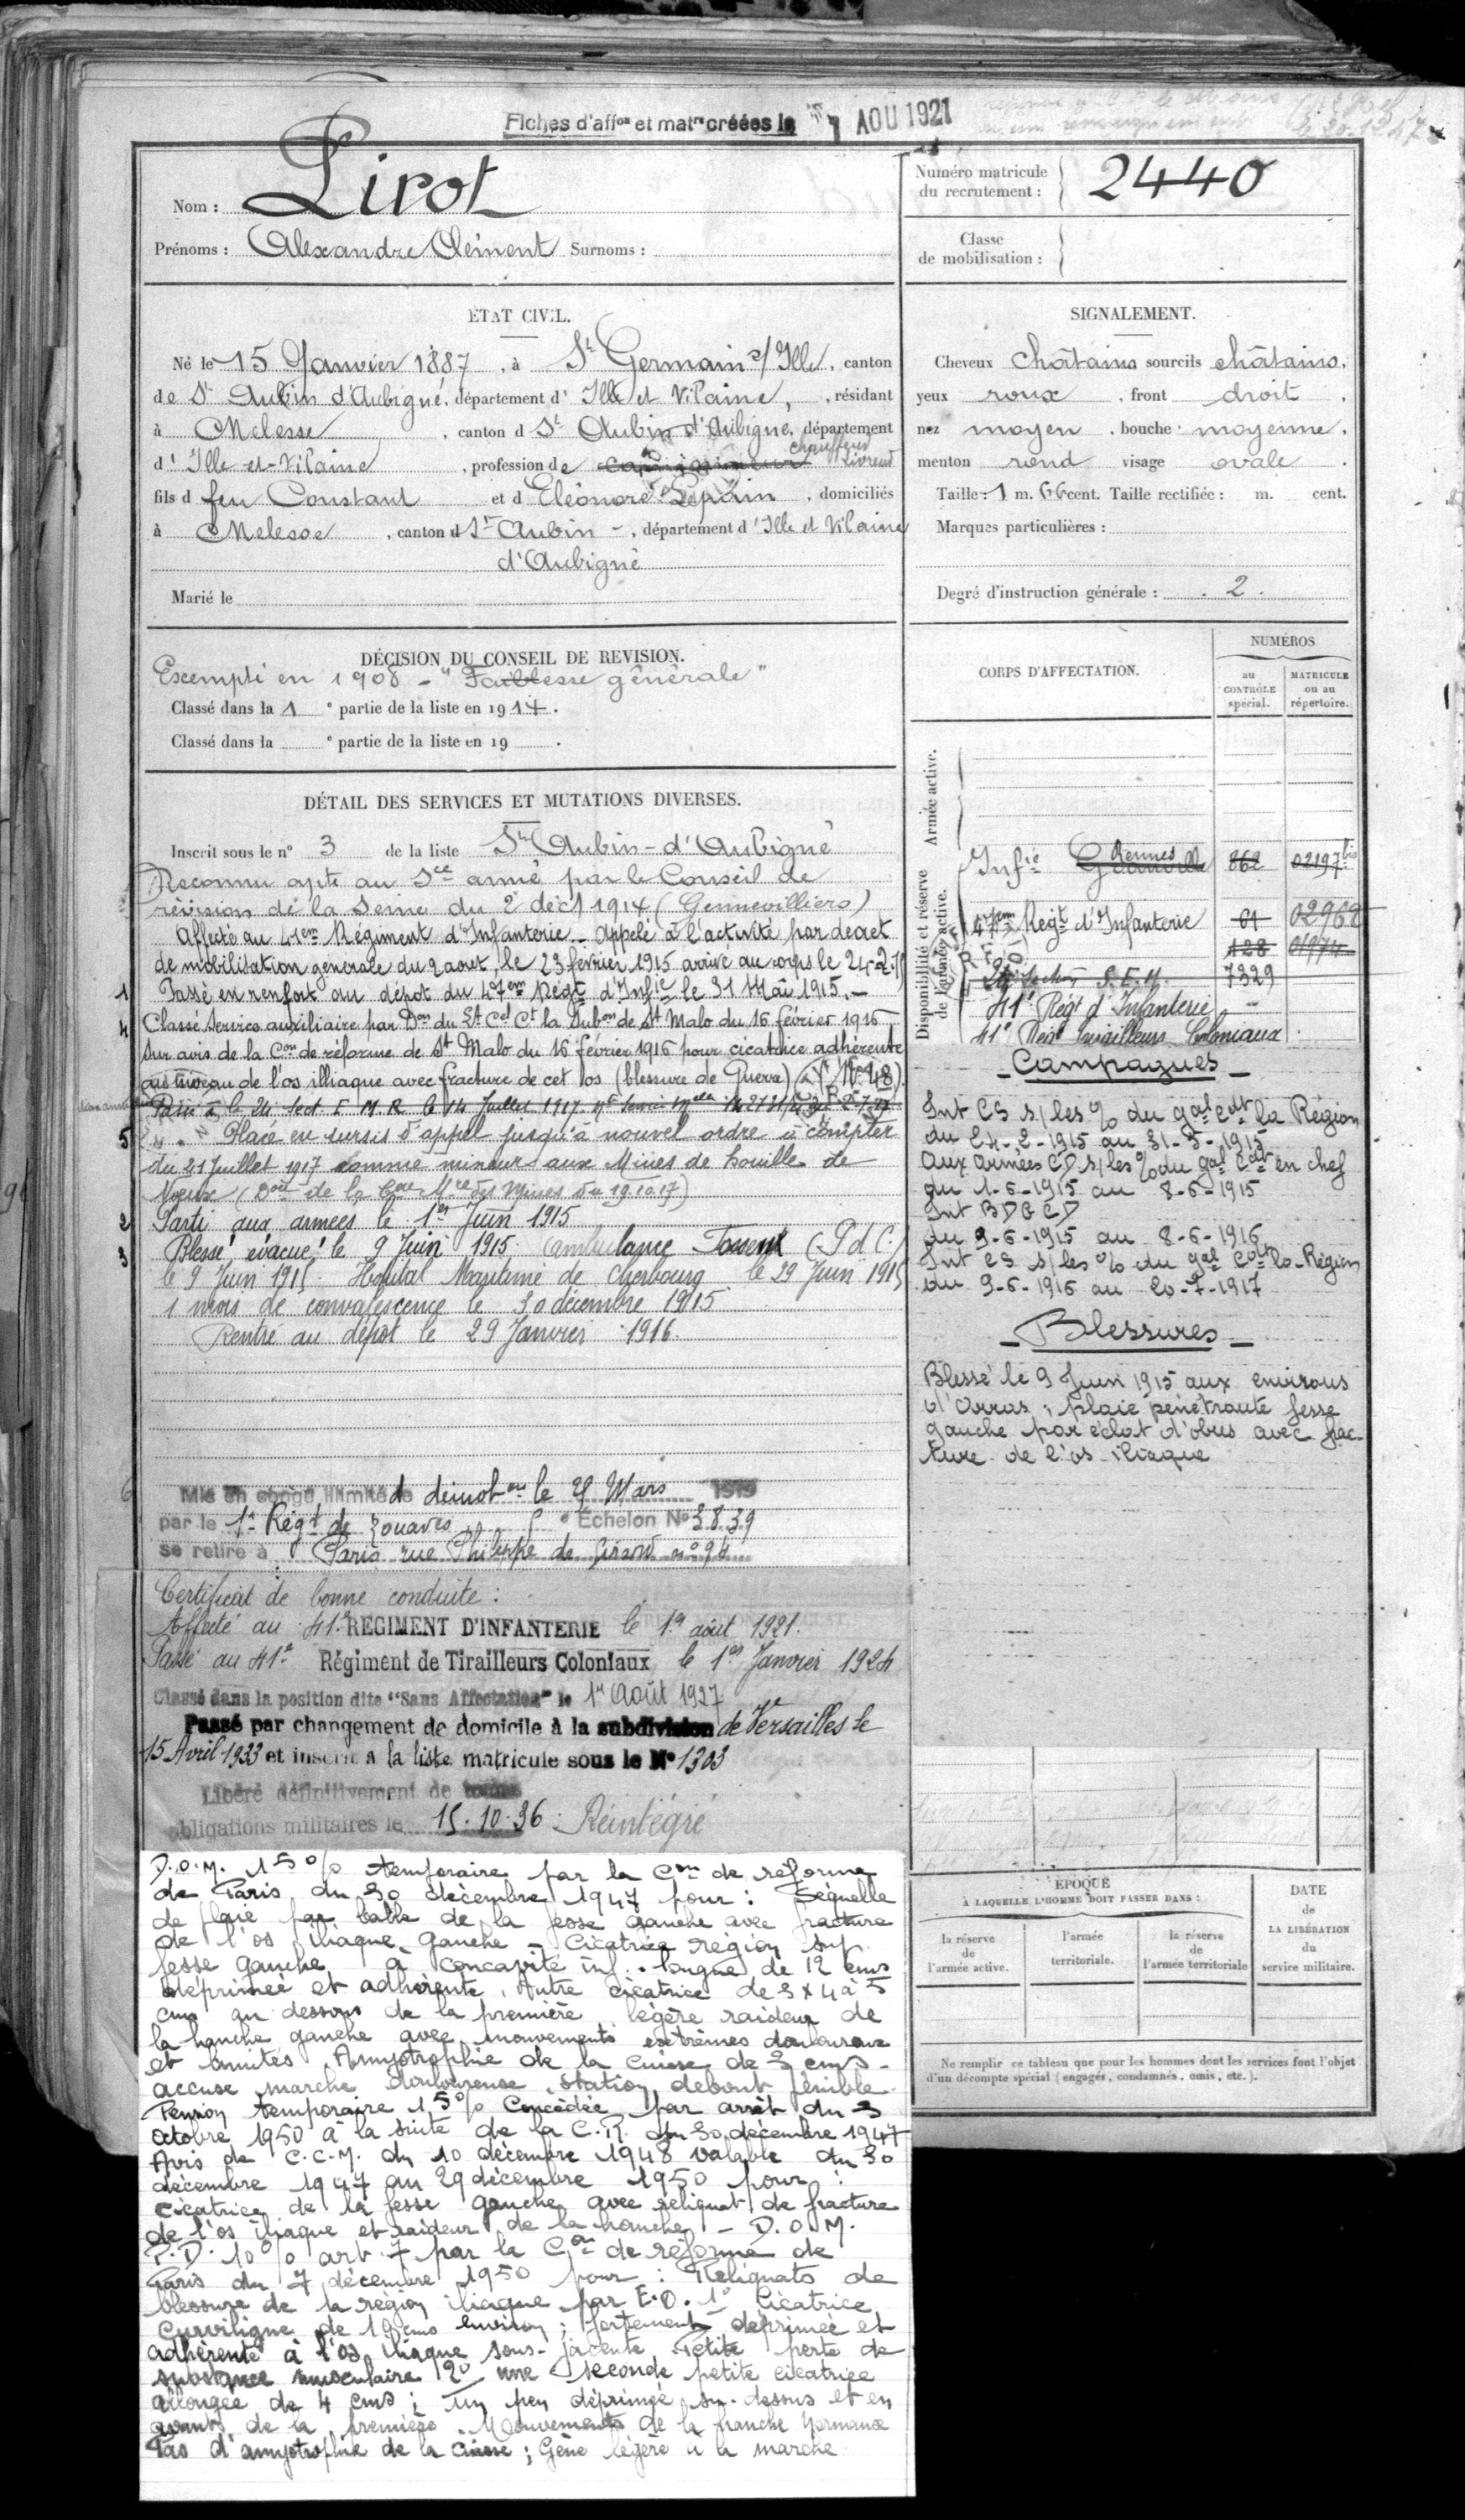 Fiches d'affon et matre créées le 1 AOU 1921
Nom : Pirot
Prénoms : Alexandre Clément Surnoms :
Numéro matricule du recrutement : 2440
Classe de mobilisation :
ÉTAT CIVIL.
Né le 15 Janvier 1887, à St Germain s/ Ille, canton
de St Aubin d'Aubigné, département d'Ille et Vilaine, résidant
à Melesse, canton d St Aubin d'Aubigné, département
d'Ille-et-Vilaine, profession de chauffeur
fils d feu Constant et d Eléonore Lepain, domiciliés
à Melesse, canton d St Aubin -, département d'Ille et Vilaine
d'Aubigné
Marié le
SIGNALEMENT.
Cheveux châtains sourcils châtains,
yeux roux, front droit,
nez moyen, bouche moyenne,
menton rond visage ovale.
Taille : 1 m. 66 cent. Taille rectifiée : m. cent.
Marques particulières :
Degré d'instruction générale : 2.
DÉCISION DU CONSEIL DE REVISION.
Exempté en 1908 - "Faiblesse générale"
Classé dans la 1e partie de la liste en 1914.
Classé dans la e partie de la liste en 19 .
DÉTAIL DES SERVICES ET MUTATIONS DIVERSES.
Inscrit sous le n° 3 de la liste St Aubin-d'Aubigné
Reconnu apte au Sce armé par le Conseil de
révision de la Seine du 2 déc 1914 (Gennevilliers)
Affecté au 41em Régiment d'Infanterie - Appelé à l'activité par décret
de mobilisation générale du 2 aout, le 23 février 1915 arrivé au corps le 24-2-15
1 Passé en renfort au dépot du 47em Régt d'Infie le 31 Mai 1915.-
4 Classé Service auxiliaire par Don du Lt Cel Ct la Subon de St Malo du 16 février 1916
sur avis de la Con de réforme de St Malo du 16 février 1916 pour cicatrice adhérente
au niveau de l'os illiaque avec fracture de cet os (blessure de Guerre)
Passé à le 24 Sect. E M R le 14 Juillet 1917
5 Placé en sursis d'appel jusqu'à nouvel ordre à compter
du 21 Juillet 1917 comme mineur aux Mines de houille de
Noeux
2 Parti aux armées le 1er Juin 1915
3 Blessé évacué le 9 Juin 1915 ambulance (P d C)
le 9 Juin 1915. Hôpital Maritime de Cherbourg le 29 Juin 1915
1 mois de convalescence le 30 décembre 1915
Rentré au dépôt le 29 Janvier 1916.
6 Mis en congé illimité de démobon le 25 Mars 1919
par le 1er Régt de Zouaves Echelon N° 3839
se retire à Paris rue Philippe de Girard n° 94
Certificat de bonne conduite :
Affecté au 41e REGIMENT D'INFANTERIE le 1er août 1921.
Passé au 41e Régiment de Tirailleurs Coloniaux le 1er Janvier 1924
Classé dans la position dite "Sans Affectation" le 1er Août 1927
Passé par changement de domicile à la subdivision de Versailles le
15 Avril 1933 et inscrit à la liste matricule sous le N° 1303
Libéré définitivement de toutes
obligations militaires le 15.10.36 Réintégré
D.O.M. 15% temporaire par la Con de réforme
de Paris du 30 décembre 1947 pour : Séquelle
de plaie par balle de la fesse gauche avec fracture
de l'os iliaque gauche - Cicatrice région sup.
fesse gauche à concavité inf. longue de 12 cms
déprimée et adhérente. Autre cicatrice de 3 x 4 à 5
cms au dessous de la première légère raideur de
la hanche gauche avec mouvements extrêmes douloureux
et limités. Amyotrophie de la cuisse de 3 cms -
accuse marche douloureuse, station debout pénible.
Pension temporaire 15% Concédée par arrêt du 3
octobre 1950 à la suite de la C.R. du 30 décembre 1947
Avis de C.C.M. du 10 décembre 1948 valable du 30
décembre 1947 au 29 décembre 1950 pour :
cicatrice de la fesse gauche avec reliquat de fracture
de l'os iliaque et raideur de la hanche - D.O.M.
P.D. 10% art. 7 par la Con de réforme de
Paris du 7 décembre 1950 pour : Reliquats de
blessure de la région iliaque par E.O. 1° Cicatrice
curviligne de 10 cms environ ; fortement déprimée et
adhérente à l'os iliaque sous-jacente. Petite perte de
substance musculaire 2° une seconde petite cicatrice
allongée de 4 cms ; un peu déprimée au-dessus et en
avant de la première. Mouvements de la hanche normaux
Pas d'amyotrophie de la cuisse ; Gêne légère à la marche
CORPS D'AFFECTATION.
NUMÉROS
au CONTRÔLE spécial.
MATRICULE ou au répertoire.
Armée active.
Disponibilité et réserve de l'armée active.
Infie Granville Rennes 862 02197 bis
47em Régt d'Infanterie 61 02968
128 01974
S.E.M. 7329
41e Régt d'Infanterie
41e Régt tirailleurs Coloniaux
- Campagnes -
Int CS s/ les % du gal Cdt la Région
du 24-2-1915 au 31-5-1915
aux armées CD s/ les % du gal Cdt en chef
du 1-6-1915 au 8-6-1915
Int BDG CD
du 9-6-1915 au 8-6-1916
Int CS s/ les % du gal Cdt la Région
du 9-6-1916 au 20-7-1917
- Blessures -
Blessé le 9 Juin 1915 aux environs
d'Arras ; plaie pénétrante fesse
gauche par éclat d'obus avec frac-
ture de l'os iliaque
ÉPOQUE
À LAQUELLE L'HOMME DOIT PASSER DANS :
la réserve de l'armée active.
l'armée territoriale.
la réserve de l'armée territoriale
DATE de LA LIBÉRATION du service militaire.
Ne remplir ce tableau que pour les hommes dont les services font l'objet
d'un décompte spécial (engagés, condamnés, omis, etc.).